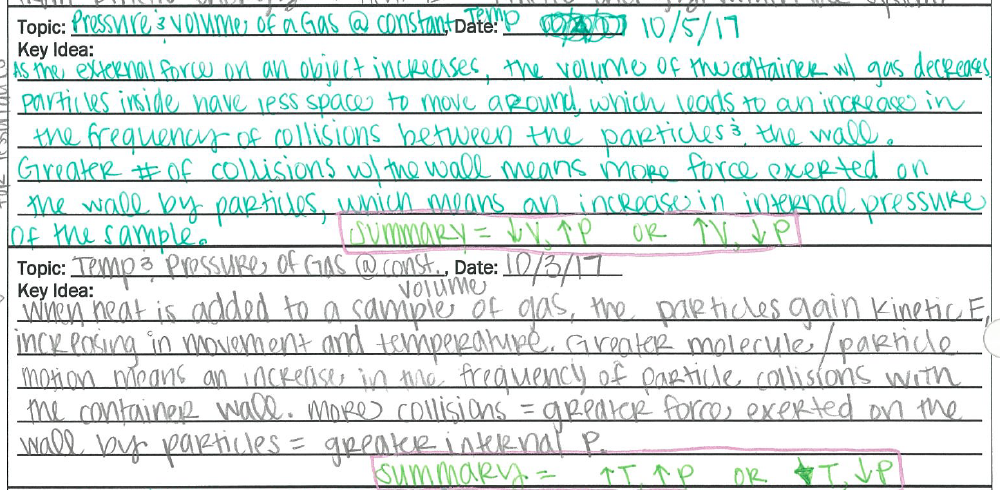 Topic: Pressure & volume of a Gas @ constant Temp Date: 10/5/17
Key Idea:
As the external force on an object increases, the volume of the container w/ gas decreases.
Particles inside have less space to move around, which leads to an increase in
the frequency of collisions between the particles & the wall.
Greater # of collisions w/ the wall means more force exerted on
the wall by particles, which means an increase in internal pressure
of the sample. summary = ↓V, ↑P OR ↑V, ↓P
Topic: Temp & Pressure of Gas @ const. volume, Date: 10/3/17
Key Idea:
When heat is added to a sample of gas, the particles gain kinetic E,
increasing in movement and temperature. Greater molecule/particle
motion means an increase in the frequency of particle collisions with
the container wall. more collisions = greater force exerted on the
wall by particles = greater internal P.
summary = ↑T, ↑P OR ↓T, ↓P